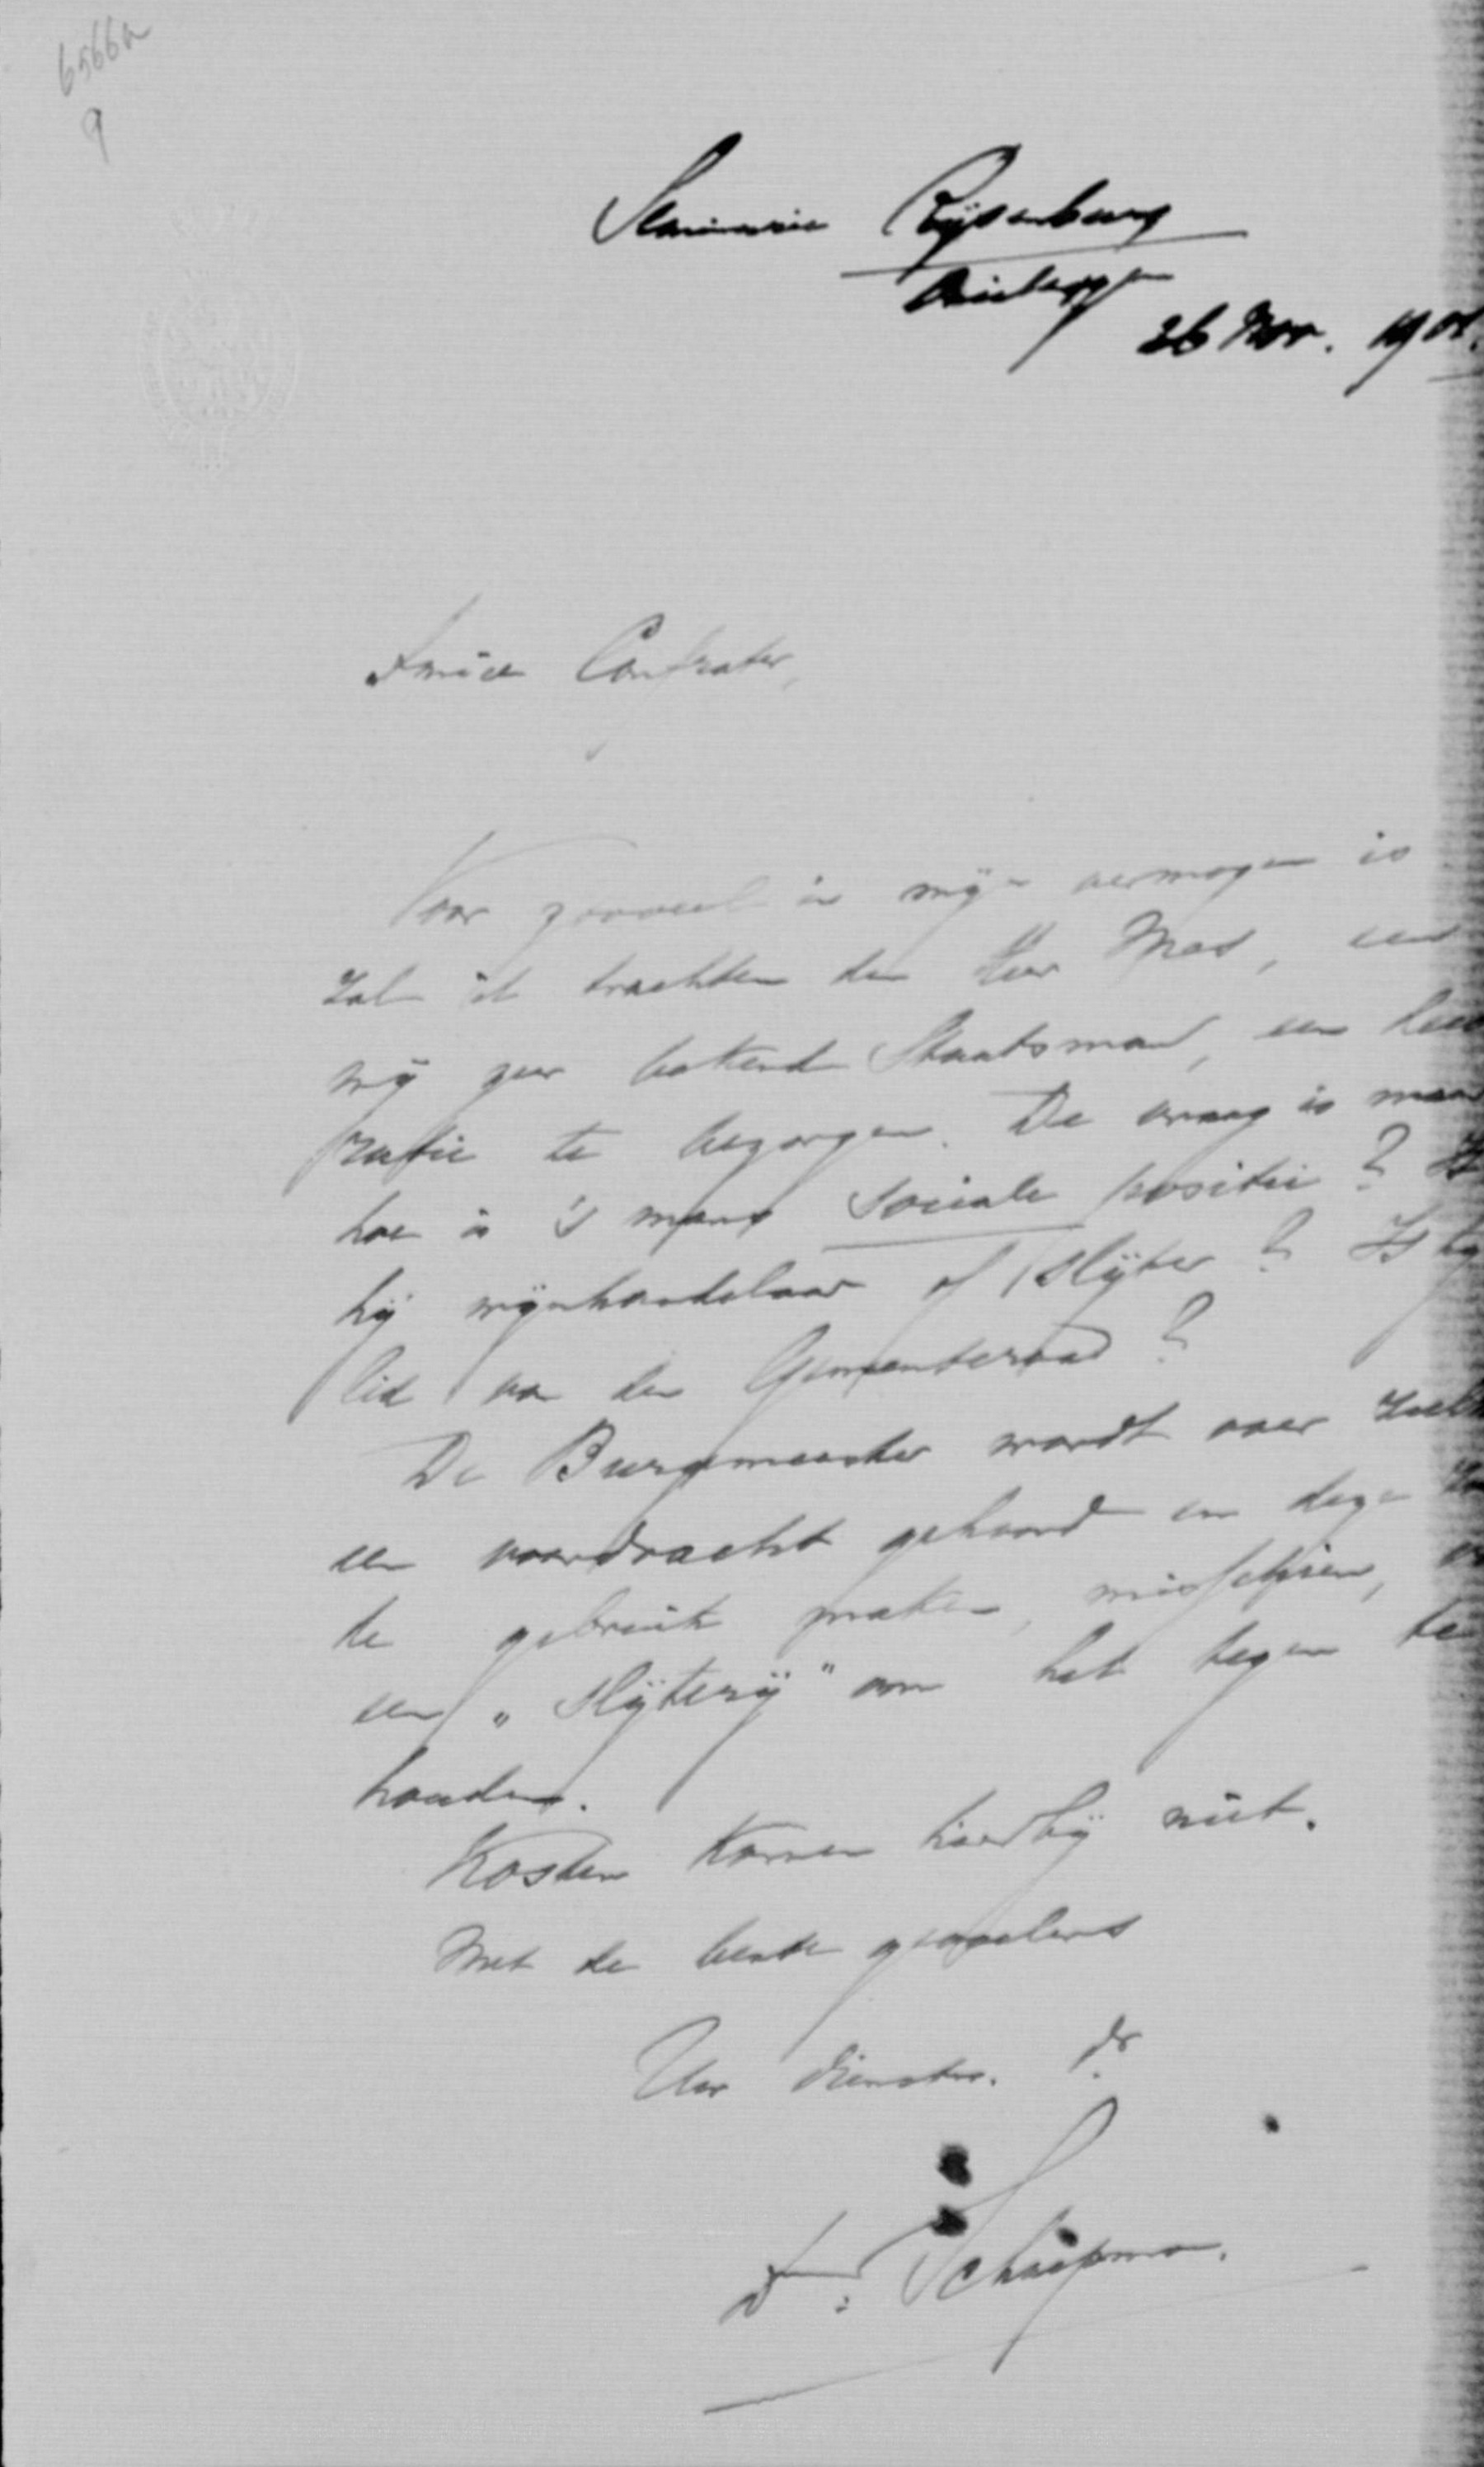 6566a
9
Seminarie Rijsenburg
Driebergen
26 Nov. 1901.
Amice Confrater,
Voor zooveel in mijn vermogen is
zal ik trachten den Heer Mes, een
mij zeer bekend Staatsman, een
te bezorgen. De vraag is maar
hoe is 's mans sociale positie? Is
hij wijnhandelaar of slijter? Is hij
lid van den Gemeenteraad?
De Burgemeester wordt over zulk
een voordracht gehoord en deze zou
de gebruik maken, misschien, van
een „slijterij" om het tegen te
houden.
Kosten komen hierbij niet.
Met de beste groeten
Uw dienstw. dr
Dr. Schaepman.